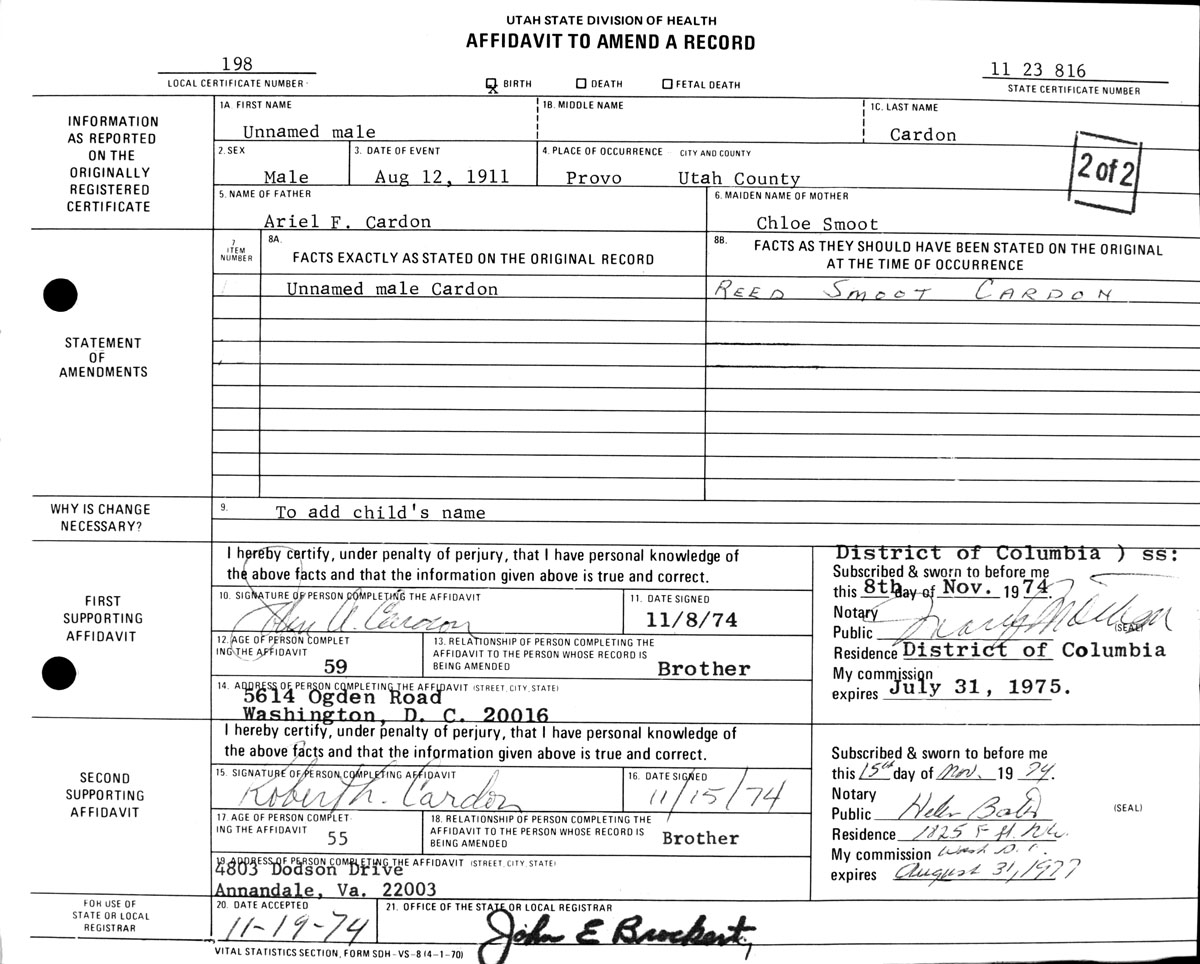 UTAH STATE DIVISION OF HEALTH
AFFIDAVIT TO AMEND A RECORD
198
LOCAL CERTIFICATE NUMBER
X BIRTH DEATH FETAL DEATH
11 23 816
STATE CERTIFICATE NUMBER
INFORMATION AS REPORTED ON THE ORIGINALLY REGISTERED CERTIFICATE
1A. FIRST NAME 1B. MIDDLE NAME 1C. LAST NAME
Unnamed male Cardon
2. SEX 3. DATE OF EVENT 4. PLACE OF OCCURRENCE CITY AND COUNTY
Male Aug 12, 1911 Provo Utah County
2 of 2
5. NAME OF FATHER 6. MAIDEN NAME OF MOTHER
Ariel F. Cardon Chloe Smoot
STATEMENT OF AMENDMENTS
7 ITEM NUMBER
8A. FACTS EXACTLY AS STATED ON THE ORIGINAL RECORD
8B. FACTS AS THEY SHOULD HAVE BEEN STATED ON THE ORIGINAL
AT THE TIME OF OCCURRENCE
1 Unnamed male Cardon REED SMOOT CARDON
WHY IS CHANGE NECESSARY?
9. To add child's name
FIRST SUPPORTING AFFIDAVIT
I hereby certify, under penalty of perjury, that I have personal knowledge of
the above facts and that the information given above is true and correct.
10. SIGNATURE OF PERSON COMPLETING THE AFFIDAVIT 11. DATE SIGNED
John A. Cardon 11/8/74
12. AGE OF PERSON COMPLETING THE AFFIDAVIT 59
13. RELATIONSHIP OF PERSON COMPLETING THE AFFIDAVIT TO THE PERSON WHOSE RECORD IS BEING AMENDED Brother
14. ADDRESS OF PERSON COMPLETING THE AFFIDAVIT (STREET, CITY, STATE)
5614 Ogden Road
Washington, D. C. 20016
District of Columbia ) ss:
Subscribed & sworn to before me
this 8th day of Nov. 1974.
Notary
Public (SEAL)
Residence District of Columbia
My commission
expires July 31, 1975.
SECOND SUPPORTING AFFIDAVIT
I hereby certify, under penalty of perjury, that I have personal knowledge of
the above facts and that the information given above is true and correct.
15. SIGNATURE OF PERSON COMPLETING AFFIDAVIT 16. DATE SIGNED
Robert L. Cardon 11/15/74
17. AGE OF PERSON COMPLETING THE AFFIDAVIT 55
18. RELATIONSHIP OF PERSON COMPLETING THE AFFIDAVIT TO THE PERSON WHOSE RECORD IS BEING AMENDED Brother
19. ADDRESS OF PERSON COMPLETING THE AFFIDAVIT (STREET, CITY, STATE)
4803 Dodson Drive
Annandale, Va. 22003
Subscribed & sworn to before me
this 15th day of Nov. 1974.
Notary
Public Helen (SEAL)
Residence 1825 F St. NW.
My commission Wash D.C.
expires August 31, 1977
FOR USE OF STATE OR LOCAL REGISTRAR
20. DATE ACCEPTED 21. OFFICE OF THE STATE OR LOCAL REGISTRAR
11-19-74 John E Brockert,
VITAL STATISTICS SECTION, FORM SDH-VS-8 (4-1-70)